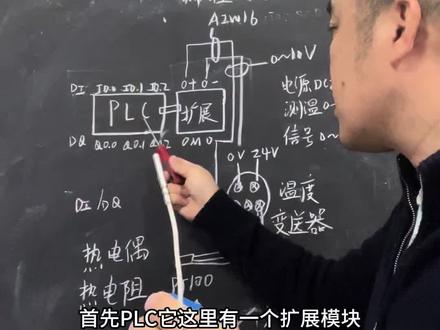 AIW16
0~10V
0+ 0-
DI I0.0 I0.1 I0.2
PLC
扩展
DQ Q0.0 Q0.1 Q0.2 0 M 0
电源DC
测温0~
信号0~
0V 24V
温度
变送器
DI/DQ
热电偶
热电阻
PT100
首先PLC它这里有一个扩展模块